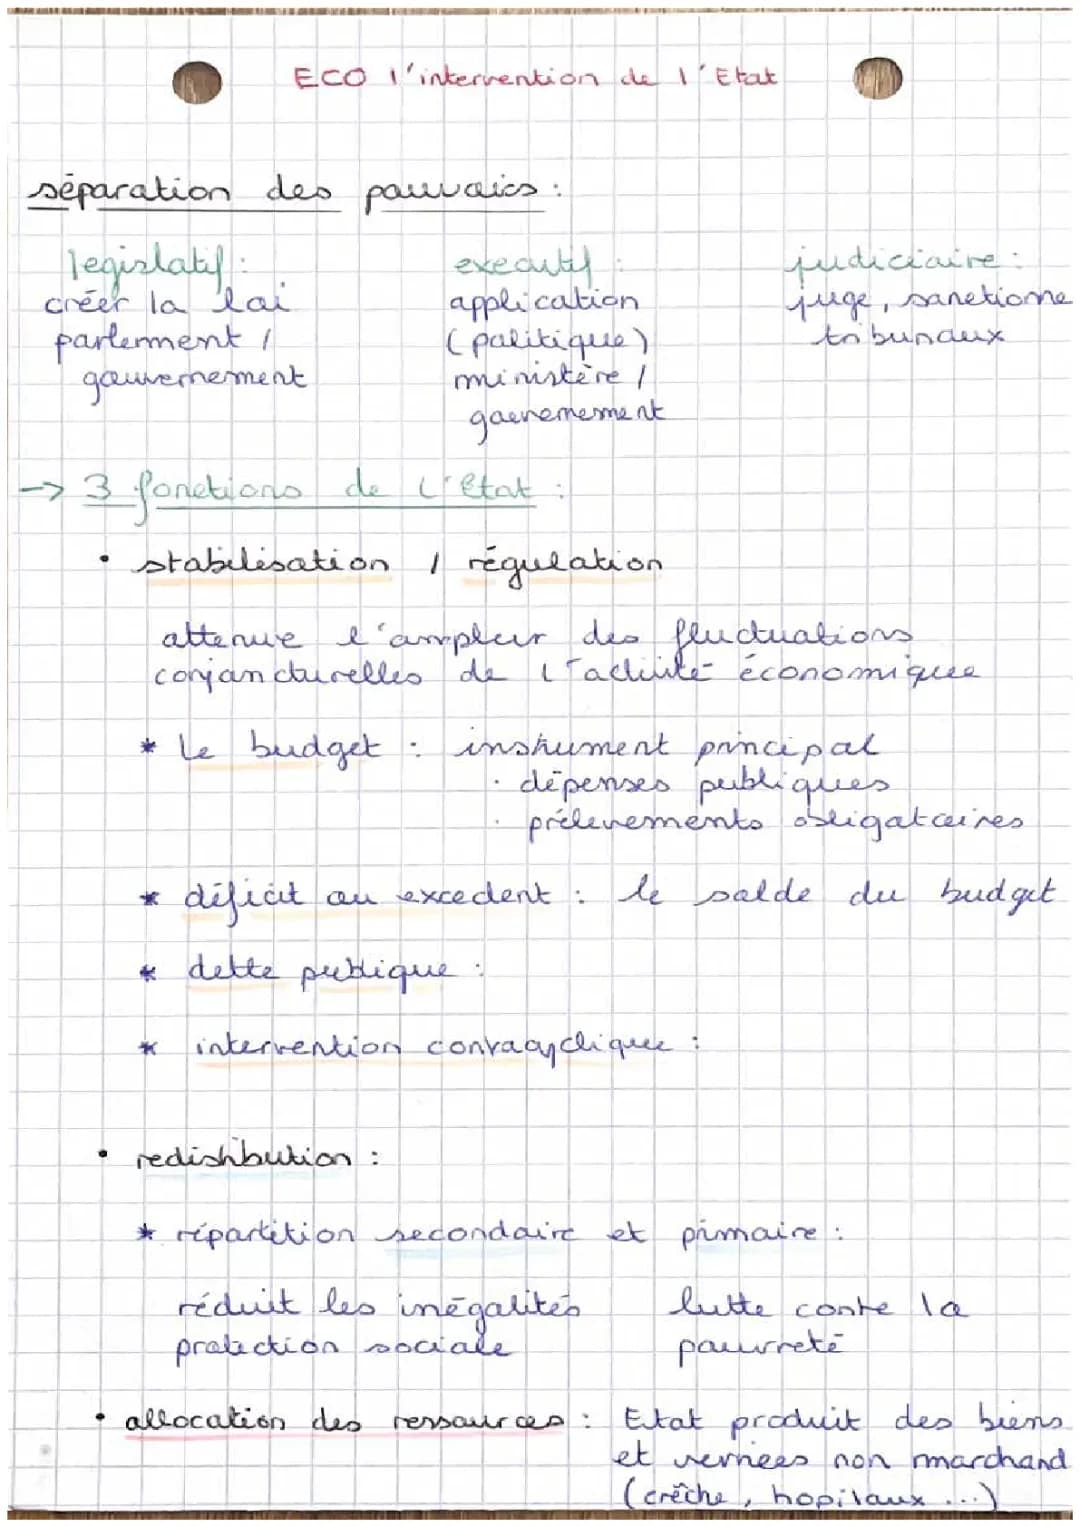 ECO l'intervention de l'Etat
séparation des pouvoirs :
legislatif : executif : judiciaire :
créer la loi application juge, sanctionne
parlement / (politique) tribunaux
gouvernement ministère /
gouvernement
-> 3 fonctions de l'Etat :
• stabilisation / régulation
attenue l'ampleur des fluctuations
conjoncturelles de l'activité économique
* Le budget : instrument principal
· dépenses publiques
· prélevements obligatoires
* déficit ou excedent : le solde du budget
* dette publique :
* intervention contracyclique :
• redistribution :
* répartition secondaire et primaire :
réduit les inégalités lutte contre la
protection sociale pauvreté
• allocation des ressources : Etat produit des biens
et services non marchand
(crêche, hopitaux ...)